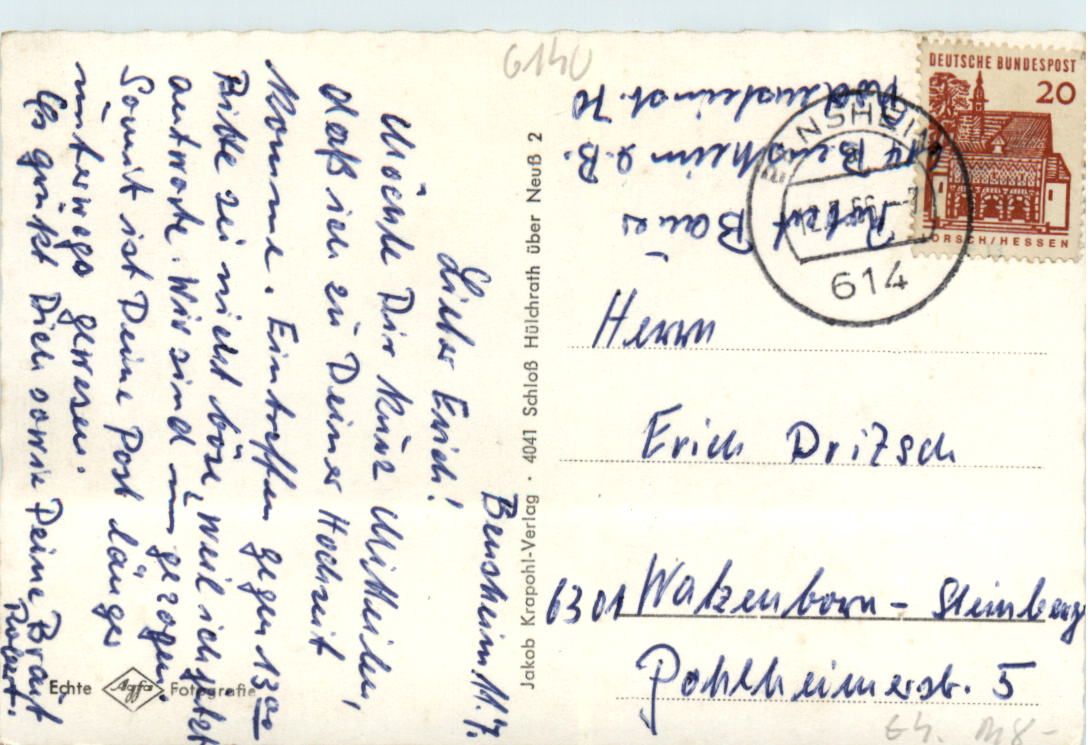 6140
DEUTSCHE BUNDESPOST
20
LORSCH/HESSEN
BENSHEIM
614
Robert Bauer
614 Bensheim a. B.
Rodensteinst. 70
Herrn
Erich Dritzsch
6301 Watzenborn - Steinberg
Pohlheimerstr. 5
Jakob Krapohl-Verlag · 4041 Schloß Hülchrath über Neuß 2
Bensheim 11.7.
Lieber Erich!
Möchte Dir kurz Mitteilen,
daß ich zu Deiner Hochzeit
Komme. Eintreffen gegen 13 00
Bitte sei nicht böse, weil ich jetzt
antworte. Wir sind gezogen.
Somit ist Deine Post länger
unterwegs gewesen.
Es grüßt Dich sowie Deine Braut
Robert.
Echte Agfa Fotografie